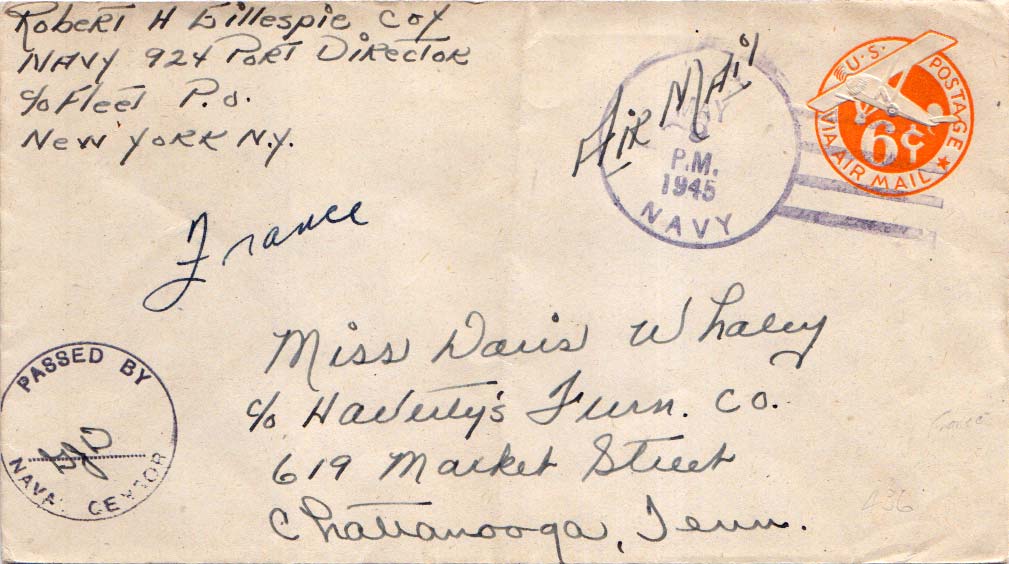 Robert H Gillespie Cox
NAVY 924 PORT DIRECTOR
c/o Fleet P.O.
New York N.Y.
Air Mail
P.M.
1945
NAVY
U.S. POSTAGE
6¢
VIA AIR MAIL
France
PASSED BY
NAVAL CENSOR
Miss Doris Whaley
c/o Haverty's Furn. Co.
619 Market Street
Chattanooga, Tenn.